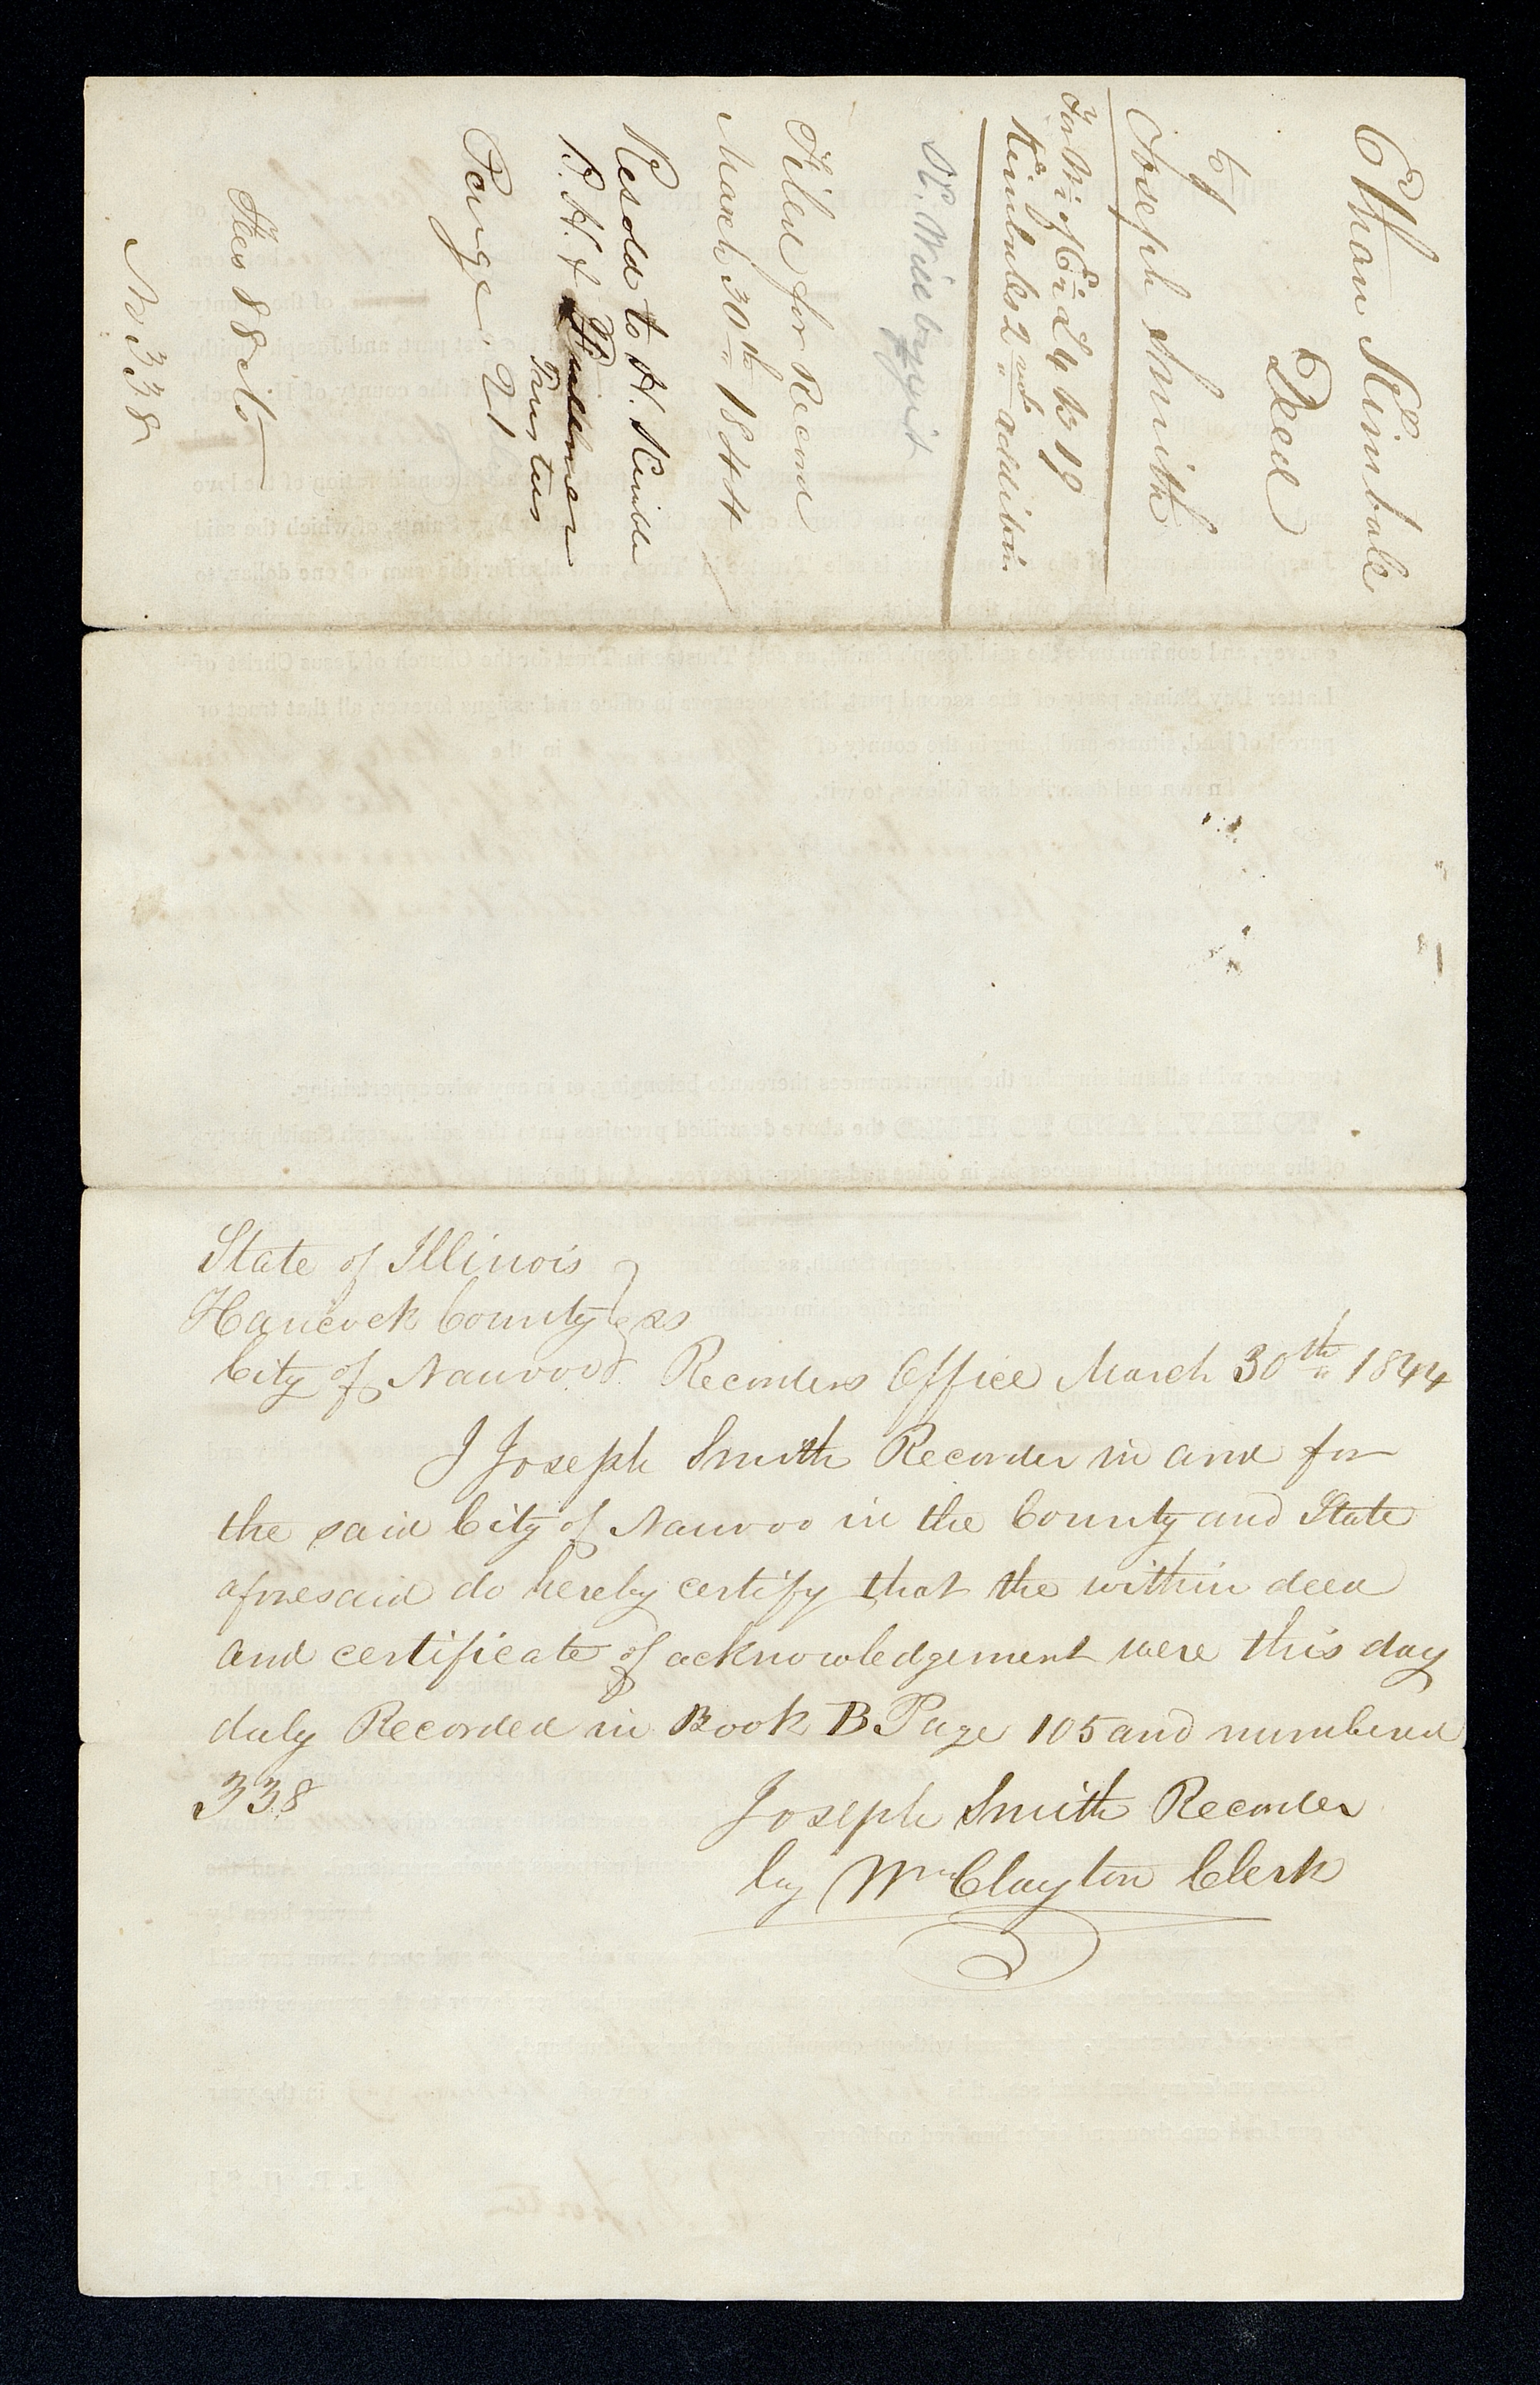 Ethan Kimball
Deed
to
Joseph Smith
For W½ of E½ L 4 B 19
Kimballs 2nd addition
Filed for Record
March 30th 1844
Resold to H. Kimble
P. H. &
Trustees
Page. 21
Fees 88 cts
No 338
State of Illinois }
Hancock County } ss
City of Nauvoo } Recorders Office March 30th 1844
I Joseph Smith Recorder in and for
the said City of Nauvoo in the County and State
aforesaid do hereby certify that the within deed
and certificate of acknowledgement were this day
duly Recorded in Book B Page 105 and numbered
338
Joseph Smith Recorder
by Wm Clayton Clerk